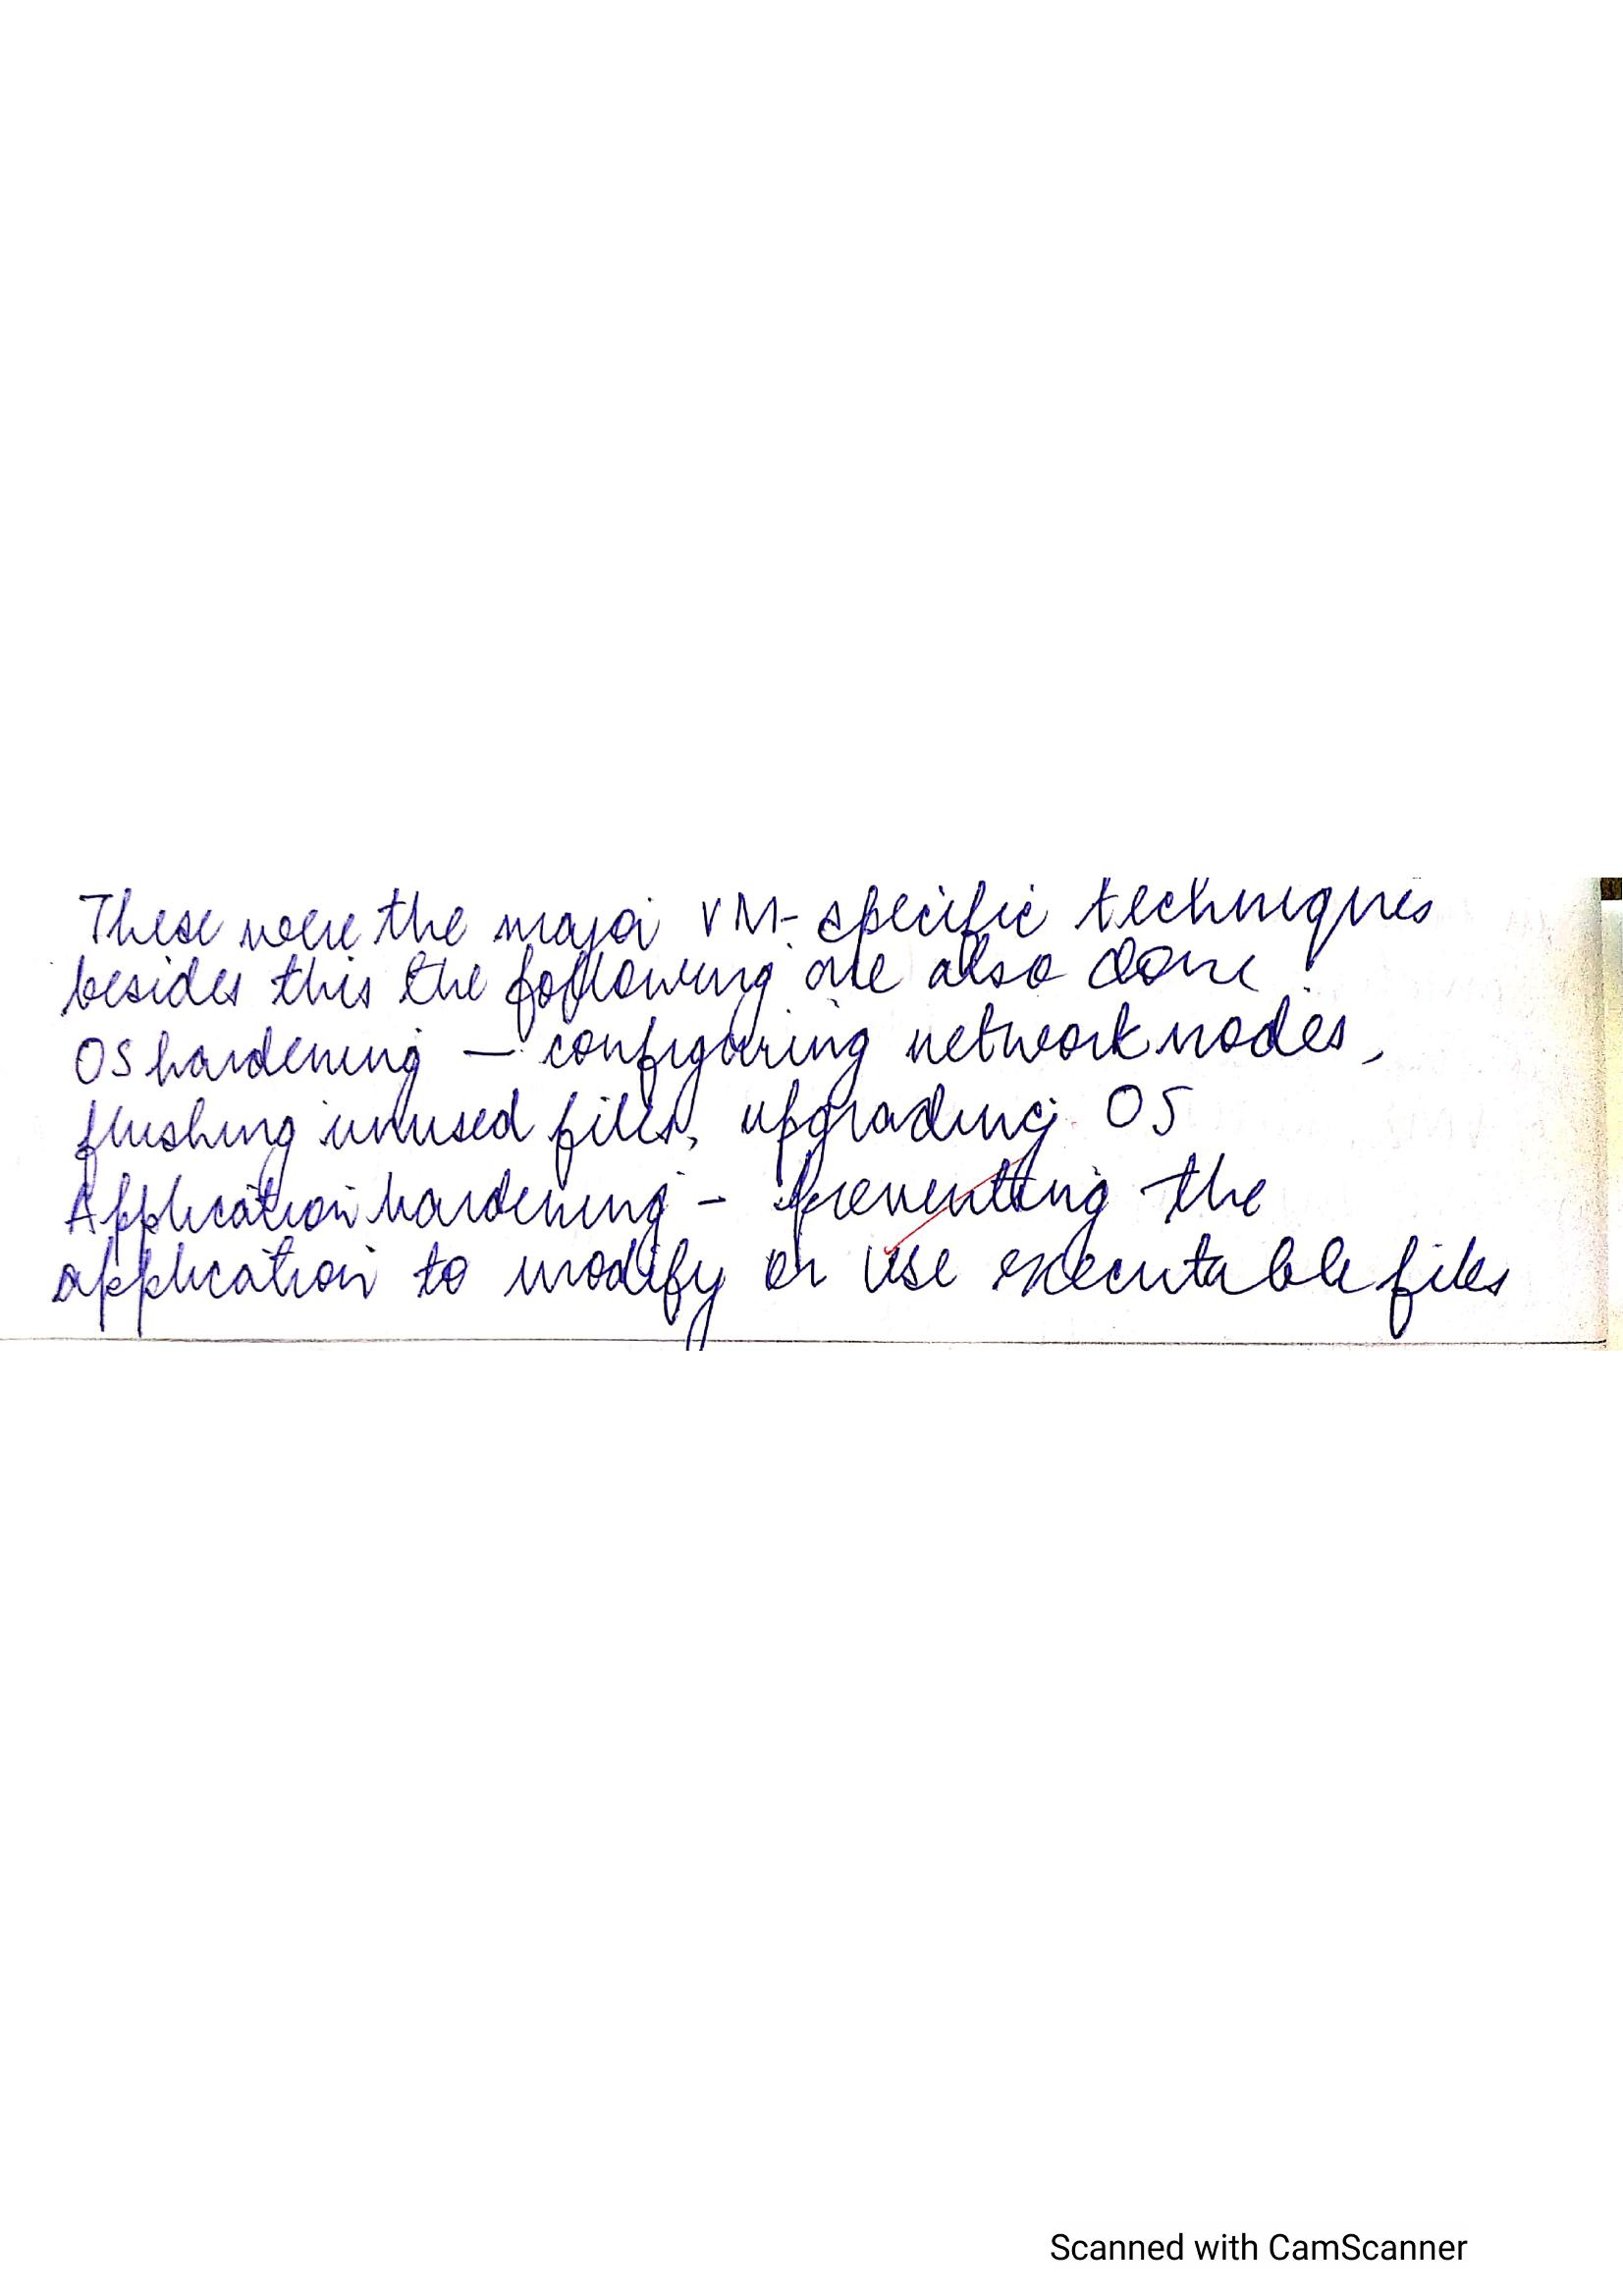 These were the major VM- specific techniques
besides this the following are also done
OS hardening — configuring network nodes,
flushing unused files, upgrading OS
Application hardening - preventing the
application to modify or use executable files
Scanned with CamScanner